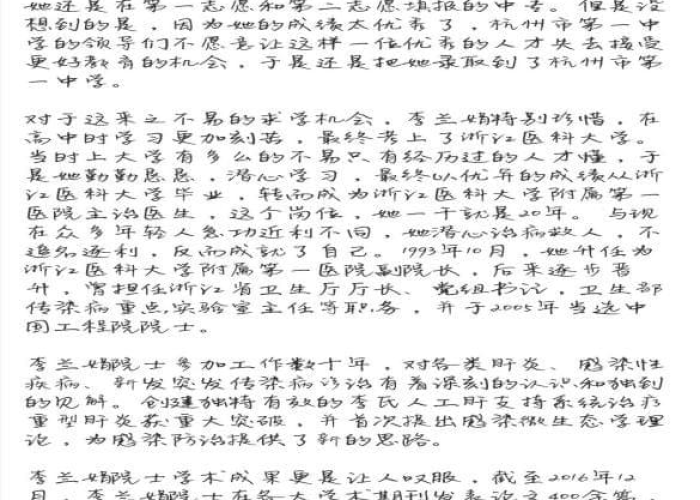 她还是在第一志愿和第二志愿填报的中专。但是没
想到的是，因为她的成绩太优秀了，杭州市第一中
学的领导们不愿意让这样一位优秀的人才失去接受
更好教育的机会，于是还是把她录取到了杭州市第
一中学。
对于这来之不易的求学机会，李兰娟特别珍惜，在
高中时学习更加刻苦，最终考上了浙江医科大学。
当时上大学有多么的不易只有经历过的人才懂，于
是她勤勤恳恳，潜心学习，最终以优异的成绩从浙
江医科大学毕业，转而成为浙江医科大学附属第一
医院主治医生，这个岗位，她一干就是20年。与现
在众多年轻人急功近利不同，她潜心治病救人，不
追名逐利，反而成就了自己。1993年10月，她升任为
浙江医科大学附属第一医院副院长，后来逐步晋
升，曾担任浙江省卫生厅厅长、党组书记，卫生部
传染病重点实验室主任等职务，并于2005年当选中
国工程院院士。
李兰娟院士参加工作数十年，对各类肝炎、感染性
疾病、新发突发传染病诊治有着深刻的认识和独到
的见解。创建独特有效的李氏人工肝支持系统治疗
重型肝炎获重大突破，并首次提出感染微生态学理
论，为感染防治提供了新的思路。
李兰娟院士学术成果更是让人叹服，截至2016年12
月，李兰娟院士在各大学术期刊发表论文400余篇，